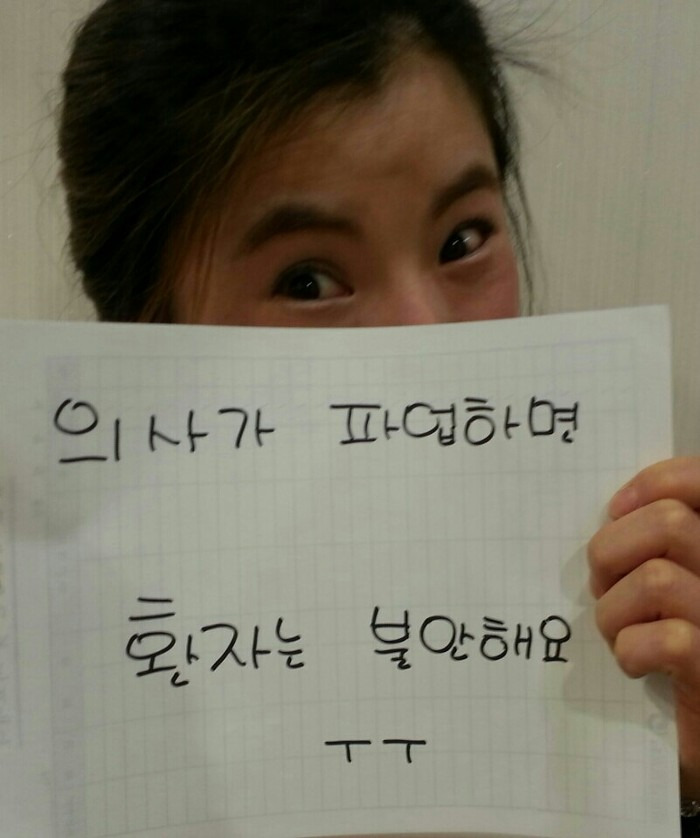 의사가 파업하면
환자는 불안해요
ㅜㅜ